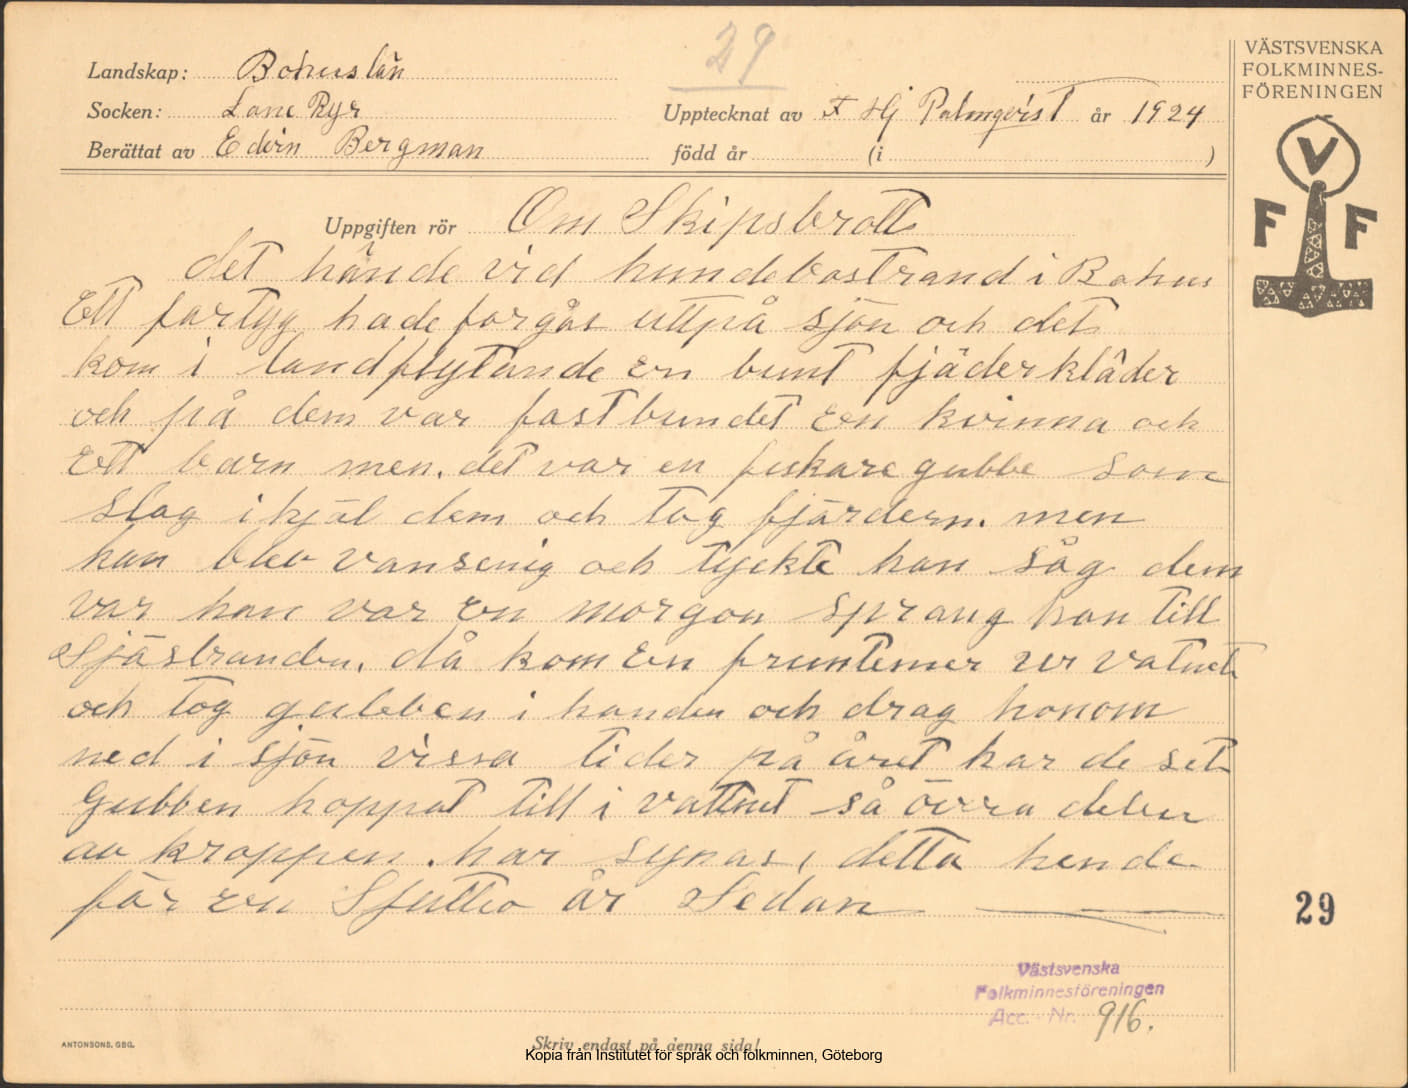 29
VÄSTSVENSKA
FOLKMINNES-
FÖRENINGEN
Landskap: Bohuslän
Socken: Lane Ryr
Upptecknat av F Hj Palmqvist år 1924
Berättat av Edvin Bergman född år (i )
V
F F
Uppgiften rör Om Skipsbrott
det hände vid hundebostrand i Bohus
Ett fartyg hade forgås uttpå sjön och det
kom i landflytande en bunt fjäderkläder
och på dem var fastbundet en kvinna och
ett barn men. det var en fiskare gubbe som
slog ikjäl dem och tog fjärdern. men
han blev vansenig och tyckte han såg dem
var han var en morgon sprang han till
Sjästranden. då kom en fruntemer ur vatnet
och tog gubben i handen och drag honom
ned i sjön vissa tider på året har de set
Gubben hoppat till i vattnet så övra delen
av kroppen. har synas, detta hende
för en Sjuttio år Sedan
29
Västsvenska
Folkminnesföreningen
Acc. Nr. 916.
ANTONSONS, GBG.
Skriv endast på denna sida!
Kopia från Institutet för språk och folkminnen, Göteborg